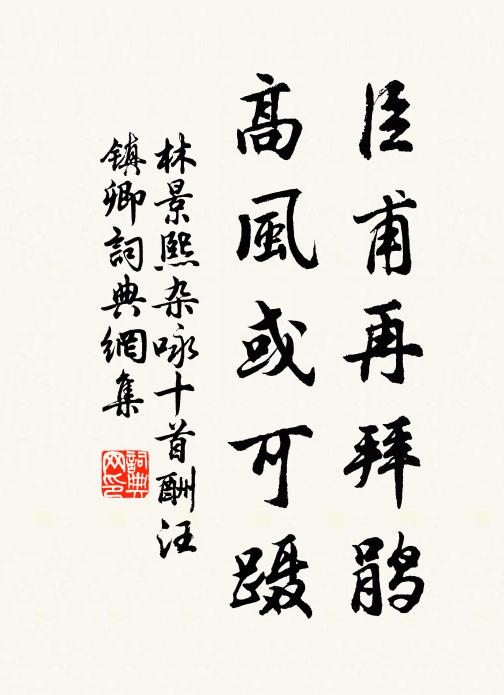 臣甫再拜鹃
高風或可蹑
林景熙杂咏十首酬汪
鎮卿詞典網集
詞典
网印